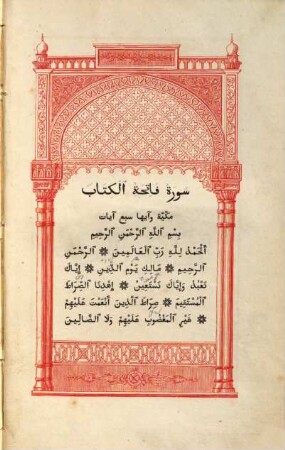 سورة فاتحة الكتاب
مكية وآيها سبع آيات
بِسْمِ اللّٰهِ الرَّحْمٰنِ الرَّحِيمِ
اَلْحَمْدُ لِلّٰهِ رَبِّ الْعَالَمِينَ ❊ اَلرَّحْمٰنِ
الرَّحِيمِ ❊ مَالِكِ يَوْمِ الدِّينِ ❊ إِيَّاكَ
نَعْبُدُ وَإِيَّاكَ نَسْتَعِينُ ❊ اِهْدِنَا الصِّرَاطَ
الْمُسْتَقِيمَ ❊ صِرَاطَ الَّذِينَ أَنْعَمْتَ عَلَيْهِمْ
❊ غَيْرِ الْمَغْضُوبِ عَلَيْهِمْ وَلَا الضَّالِّينَ